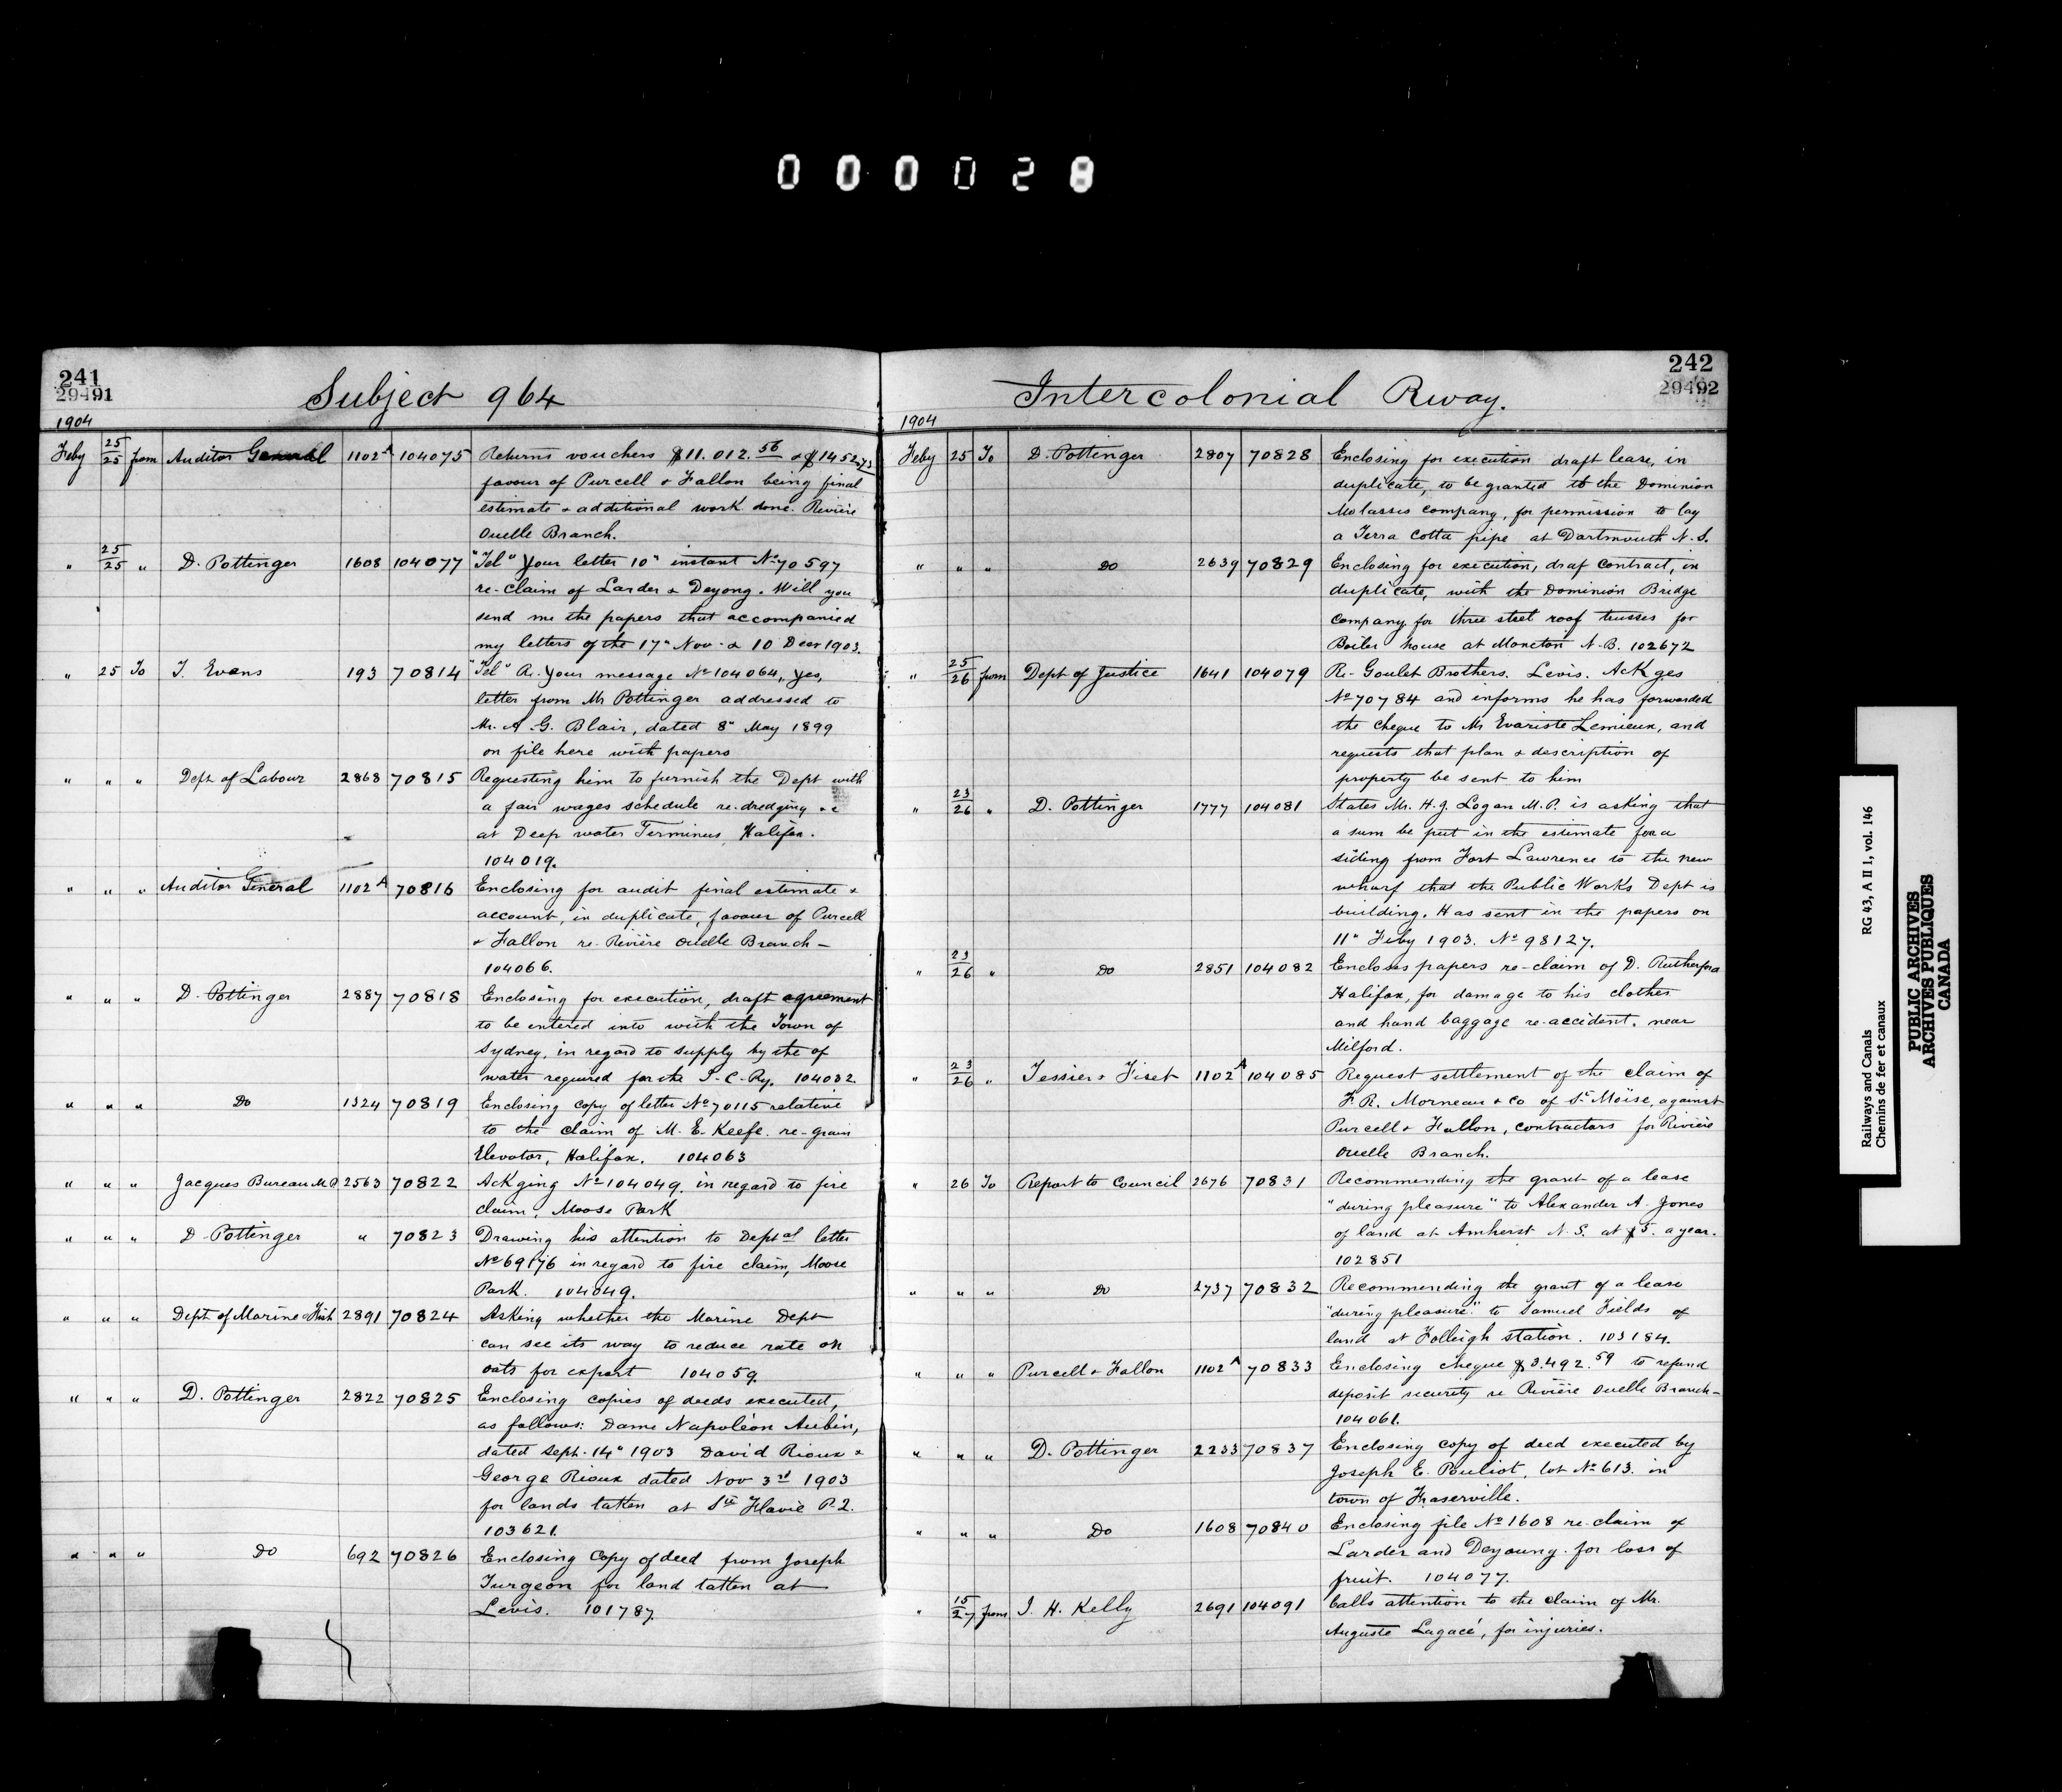 000028
241
29491
Subject 964
1904
Feby 25/25 from Auditor General 1102A 104075 Returns vouchers $11.012.56 & $1452.73
favour of Purcell & Fallon being final
estimate & additional work done. Rivière
Ouelle Branch.
" 25/25 " D. Pottinger 1608 104077 "Tel" Your letter 10" instant No 70597
re-claim of Larder & Deyong. Will you
send me the papers that accompanied
my letters of the 17" Nov. & 10 Decr 1903.
" 25 To T. Evans 193 70814 "Tel" A. Your message No 104064, yes,
letter from Mr Pottinger addressed to
Mr. A. G. Blair, dated 8" May 1899
on file here with papers
" " " Dept of Labour 2868 70815 Requesting him to furnish the Dept with
a fair wages schedule re-dredging &c
at Deep water Terminus, Halifax.
104019.
" " " Auditor General 1102A 70816 Enclosing for audit final estimate &
account, in duplicate, favour of Purcell
& Fallon re-Rivière Ouelle Branch-
104066.
" " " D. Pottinger 2887 70818 Enclosing for execution, draft agreement
to be entered into with the Town of
Sydney, in regard to supply by the of
water required for the I.C.Ry. 104032.
" " " Do 1324 70819 Enclosing copy of letter No 70115 relative
to the claim of M. E. Keefe. re-grain
Elevator, Halifax. 104063
" " " Jacques Bureau M.P. 2563 70822 Ackging No 104049. in regard to fire
claim, Moose Park
" " " D. Pottinger " 70823 Drawing his attention to Deptal letter
No 69176 in regard to fire claim, Moose
Park. 104049.
" " " Dept of Marine & Fish 2891 70824 Asking whether the Marine Dept
can see its way to reduce rate on
oats for export 104059.
" " " D. Pottinger 2822 70825 Enclosing copies of deeds executed,
as follows: Dame Napoléon Aubin,
dated Sept. 14" 1903 David Rioux &
George Rioux dated Nov 3rd 1903
for lands tatten at Ste Flavie P.2.
103621.
" " " Do 692 70826 Enclosing Copy of deed from Joseph
Turgeon for land tatten at
Levis. 101787.
242
29492
Intercolonial Rway.
1904
Feby 25 To D. Pottinger 2807 70828 Enclosing for execution draft lease, in
duplicate, to be granted to the Dominion
Molasses Company, for permission to lay
a Terra Cotta pipe at Dartmouth N.S.
" " " Do 2639 70829 Enclosing for execution, draf contract, in
duplicate, with the Dominion Bridge
Company for three steel roof trusses for
Boiler house at Moncton N.B. 102672
" 25/26 from Dept of Justice 1641 104079 Re-Goulet Brothers. Levis. Ackges
No 70784 and informs he has forwarded
the cheque to Mr Evariste Lemieux, and
requests that plan & description of
property be sent to him
" 23/26 " D. Pottinger 1777 104081 States Mr. H.J. Logan M.P. is asking that
a sum be put in the estimate for a
siding from Fort Lawrence to the new
wharf that the Public Works Dept is
building. Has sent in the papers on
11" Feby 1903. No 98127.
" 23/26 " Do 2851 104082 Encloses papers re-claim of D. Rutherford
Halifax, for damage to his clothes
and hand baggage re-accident. near
Milford.
" 23/26 " Tessier & Fiset 1102A 104085 Request settlement of the claim of
F. R. Morneau & Co of St Moïse, against
Purcell & Fallon, contractors for Rivière
Ouelle Branch.
" 26 To Report to Council 2676 70831 Recommending the grant of a lease
"during pleasure" to Alexander A. Jones
of land at Amherst N.S. at $5. a year.
102851
" " " Do 2737 70832 Recommending the grant of a lease
"during pleasure" to Samuel Fields of
land at Folleigh station. 103184.
" " " Purcell & Fallon 1102A 70833 Enclosing cheque $3.492.59 to refund
deposit security re Rivière Ouelle Branch-
104061.
" " " D. Pottinger 2233 70837 Enclosing copy of deed executed by
Joseph E. Pouliot, lot No 613. in
town of Fraserville.
" " " Do 1608 70840 Enclosing file No 1608 re-claim of
Larder and Deyoung. for loss of
fruit. 104077.
" 15/27 from J. H. Kelly 2691 104091 Calls attention to the claim of Mr.
Auguste Lagacé, for injuries.
Railways and Canals RG 43, A II 1, vol. 146
Chemins de fer et canaux
PUBLIC ARCHIVES
ARCHIVES PUBLIQUES
CANADA